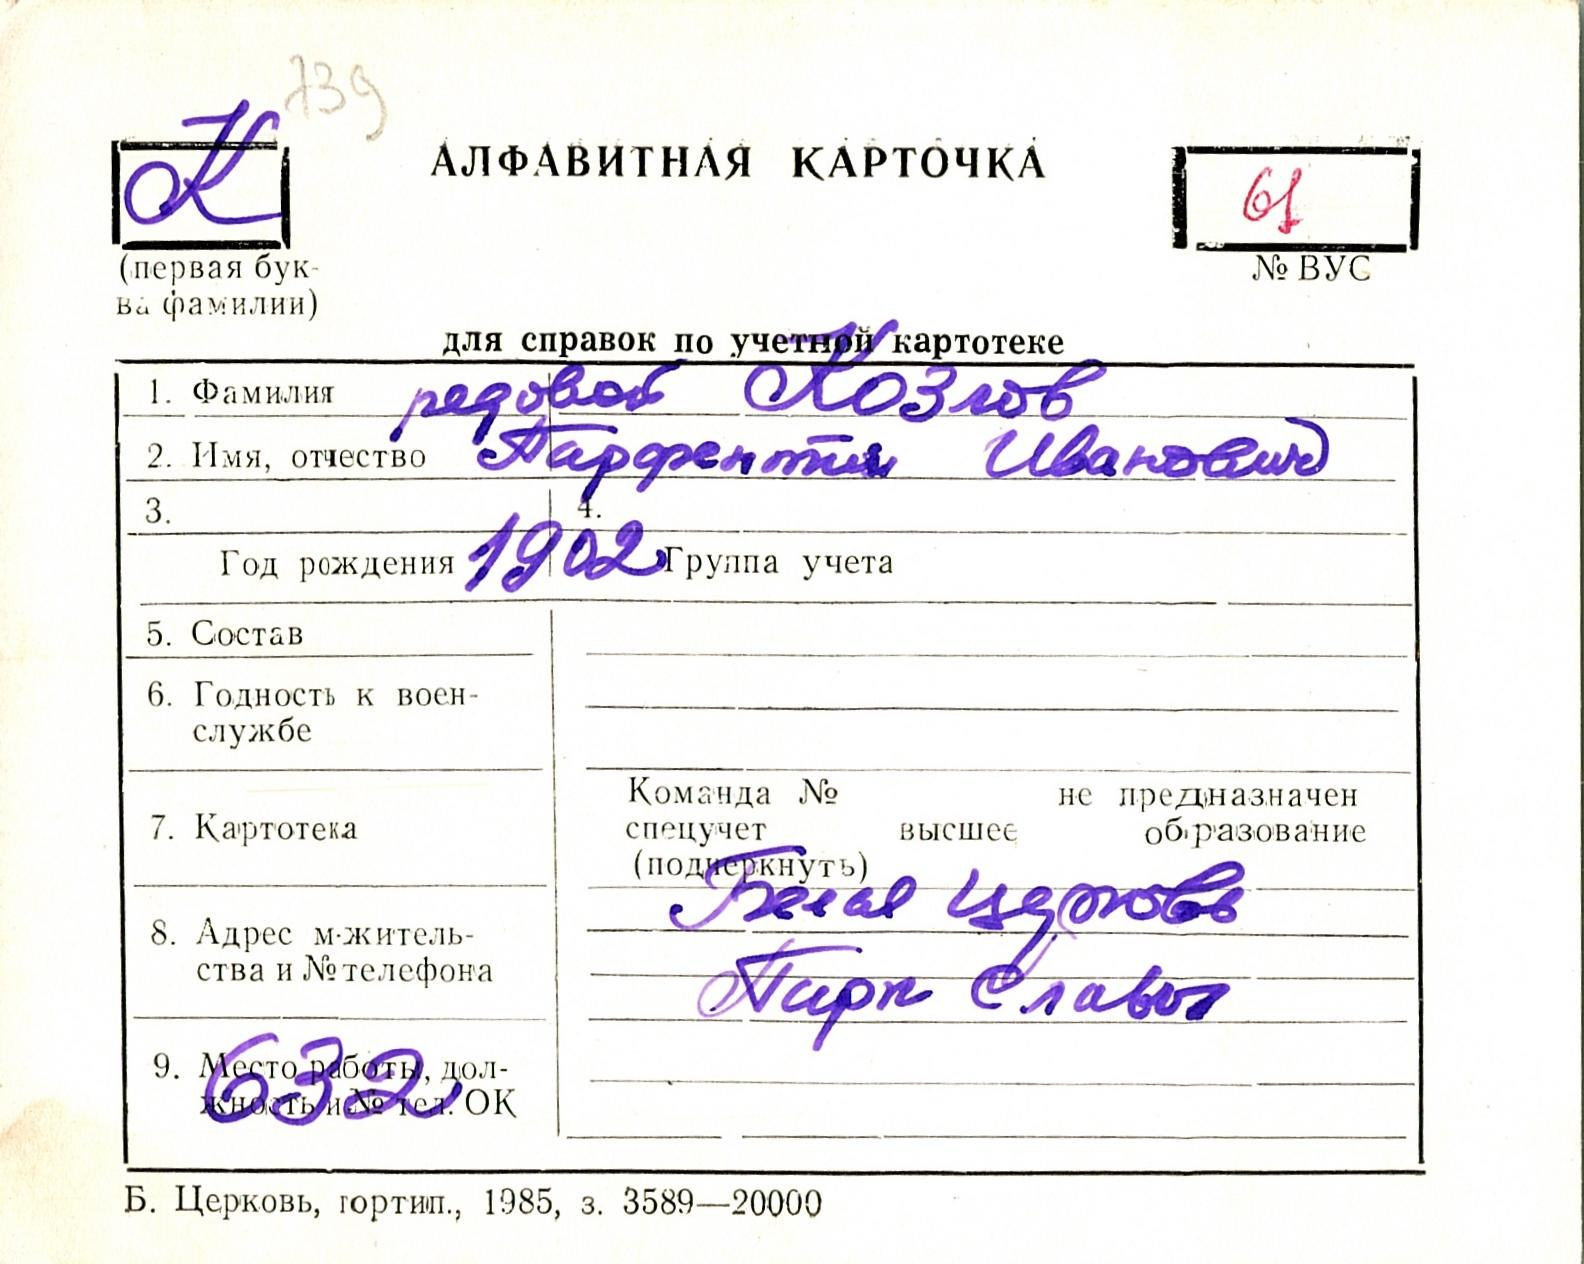 739
К
АЛФАВИТНАЯ КАРТОЧКА
61
(первая бук-
ва фамилии)
№ ВУС
для справок по учетной картотеке
1. Фамилия рядовой Козлов
2. Имя, отчество Парфентий Иванович
3. 4.
Год рождения 1902 Группа учета
5. Состав
6. Годность к воен-
службе
7. Картотека
Команда № не предназначен
спецучет высшее образование
(подчеркнуть)
8. Адрес м-житель-
ства и № телефона
Белая Церковь
Парк Славы
9. Место работы, дол-
жность и № тел. ОК
632
Б. Церковь, гортип., 1985, з. 3589—20000